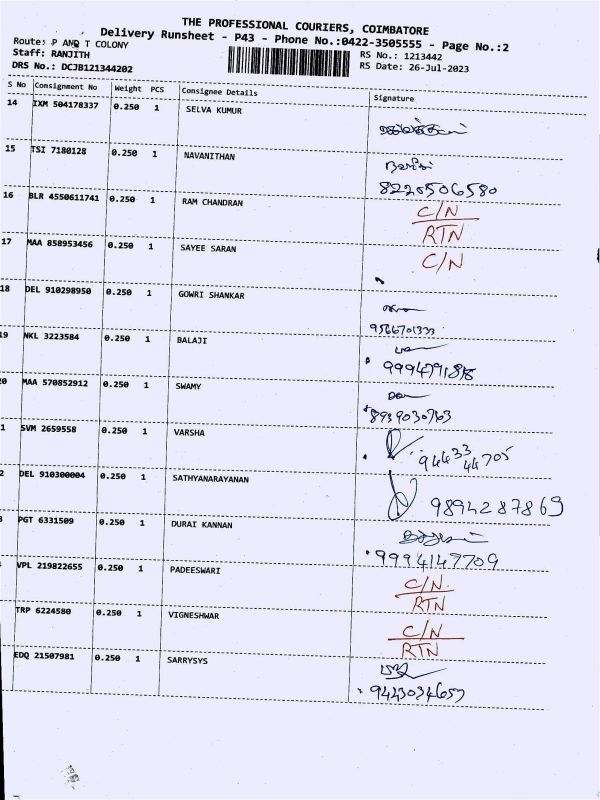 THE PROFESSIONAL COURIERS, COIMBATORE
Delivery Runsheet - P43 - Phone No.:0422-3505555 - Page No.:2
Route: P AND T COLONY
Staff: RANJITH
DRS No.: DCJB121344202
RS No.: 1213442
RS Date: 26-Jul-2023
S No Consignment No Weight PCS Consignee Details Signature
14 IXM 504178337 0.250 1 SELVA KUMUR
15 TSI 7180128 0.250 1 NAVANITHAN
8220506580
16 BLR 4550611741 0.250 1 RAM CHANDRAN C/N
RTN
17 MAA 858953456 0.250 1 SAYEE SARAN C/N
18 DEL 910298950 0.250 1 GOWRI SHANKAR
9566701333
19 NKL 3223584 0.250 1 BALAJI
9994791818
20 MAA 570852912 0.250 1 SWAMY
8939030763
1 SVM 2659558 0.250 1 VARSHA
94433
44705
2 DEL 910300004 0.250 1 SATHYANARAYANAN
9894287869
3 PGT 6331509 0.250 1 DURAI KANNAN
9994149709
VPL 219822655 0.250 1 PADEESWARI C/N
RTN
TRP 6224580 0.250 1 VIGNESHWAR C/N
RTN
EDQ 21507981 0.250 1 SARRYSYS
9443034657